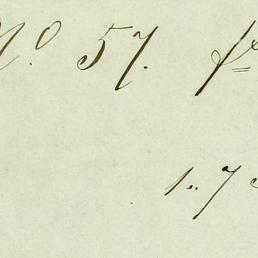 No. 57.
1. 7